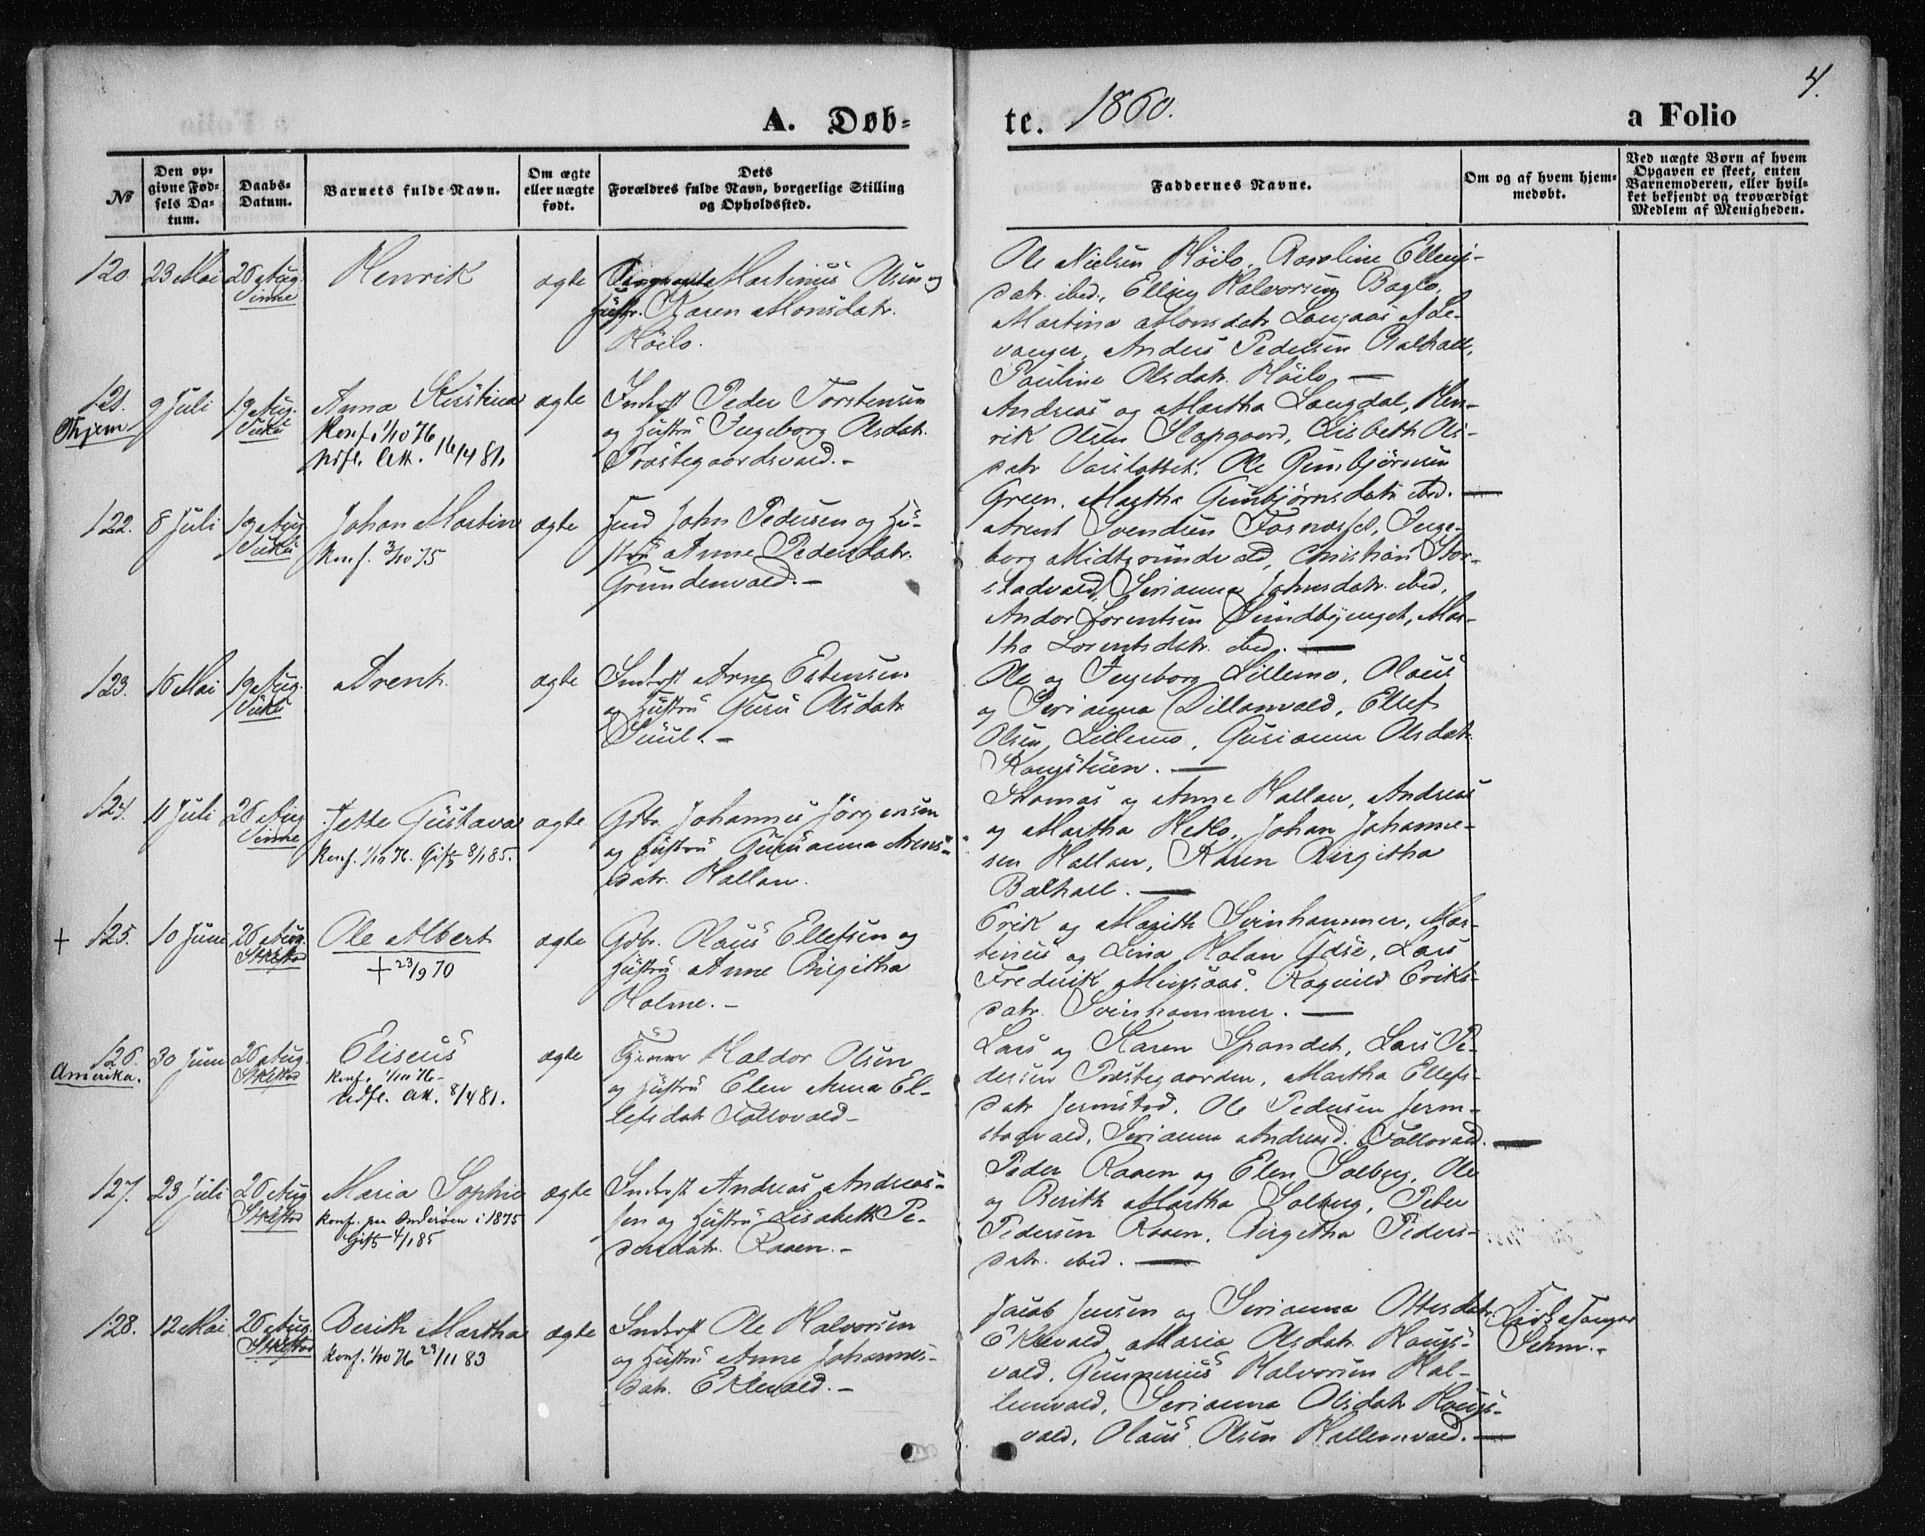 4.
A. Døbte. 1860. a Folio
№
Den opgivne Fødsels Datum.
Daabs-Datum.
Barnets fulde Navn.
Om ægte eller uægte født.
Dets Forældres fulde Navn, borgerlige Stilling og Opholdssted.
Faddernes Navne.
Om og af hvem hjemmedøbt.
Ved uægte Børn af hvem Opgaven er skeet, enten Barnemoderen, eller hvilket bekjendt og troværdigt Medlem af Menigheden.
120. 23 Mai 26 Aug. Vinne Henrik ægte
Martinus Olsen og
Hustr. Karen Monsdatr.
Höilo.
Ole Nielsen Höilo, Karoline Ellings-
datr. ibed., Elling Halvorsen Baglo,
Martina Monsdatr Langaas af Le-
vanger, Anders Pedersen Balhall,
Pauline Olsdatr. Höilo —
121. 9 Juli 19 Aug. Vuku Anna Kirstina ægte
Konf. 1/10 76
Udfl. Att. 16/4 81.
Inderst Peder Torstensen
og Hustru Ingeborg Olsdatr.
Præstegaardsvald. —
Andreas og Martha Langdal, Hen-
rik Olsen Slapgaard, Lisbeth Ols-
datr Ole Gunbjørnsen
Green, Martha Gunbjørnsdatr ibd. —
122. 8 Juli 19 Aug Vuku Johan Martin ægte
Konf. 3/10 75
John Pedersen og Hu-
stru Anne Pedersdatr.
Grundenvald. —
Arent Svendsen Inge-
borg Midtgrundvald, Christian Stor-
stadvald, Serianna Johnsdatr. ibed,
Andor Lorentsen Sundbyenget, Mar-
tha Lorentsdatr. ibed. —
123. 16 Mai 19 Aug. Vuku Arent ægte
Inderst Arne Estensen
og Hustru Guru Olsdatr
Suul. —
Ole og Ingeborg Lillemo, Olaus
og Serianna Dillanvald, Ellef
Olsen Lillemo, Gurianna Olsdatr.
Kongstuen. —
124. 11 Juli 26 Aug Vinne Jette Gustava ægte
Konf. 1/10 76. Gift 8/1 85.
Gbr. Johannes Jörgensen
og Hustru Gurianna Arens-
datr. Hallan.
Thomas og Anne Hallan, Andreas
og Martha Heklo, Johan Johanne-
sen Hallan, Karen Birgitha
Balhall. —
+ 125. 10 Juni 26 Aug. Stiklstad Ole Albert ægte
+ 23/9 70
Gbr. Olaus Ellefsen og
Hustru Anne Birgitha
Holme. —
Erik og Marith Svinhammer, Mar-
tinus og Lina Holan Ydse, Lars
Frederik Minsaas, Ragnild Eriks-
datr. Svinhammer. —
126. 30 Juni 26 Aug. Stiklstad Eliseus ægte
Amerika.
Konf. 1/10 76 -
Udfl. Att. 8/4 81.
Haldor Olsen
og Hustru Elen Anna El-
lefsdatr Follovald —
Lars og Karen Spandet, Lars Pe-
dersen Præstegaarden, Martha Ellefs-
datr Jermstad, Ole Pedersen Jerm-
stadvald, Serianna Andreasd. Follovald. —
127. 23 Juli 26 Aug Stiklstad Maria Sophie ægte
Konf. paa Inderøen i 1875
Gift 4/1 85
Inderst Andreas Andreas-
sen og Hustru Lisabeth Pe-
dersdatr. Raaen. —
Peder Raaen og Elen Solberg, Ole
og Berith Martha Solberg, Peter
Pedersen Raaen, Birgitha Peders-
datr. ibed. —
128. 12 Mai 26 Aug. Stiklstad Berith Martha ægte
Konf. 1/10 76 23/11 83
Inderst Ole Halvorsen
og Hustru Anne Johannes-
datr. Eklevald. —
Jacob Jensen og Serianna Ottersdatr.
Eklevald, Maria Olsdatr. Haugs-
vald, Gunnerius Halvorsen Hal-
lemvald, Serianna Olsdatr Haugs-
vald, Olaus Olsen Hallemvald. —